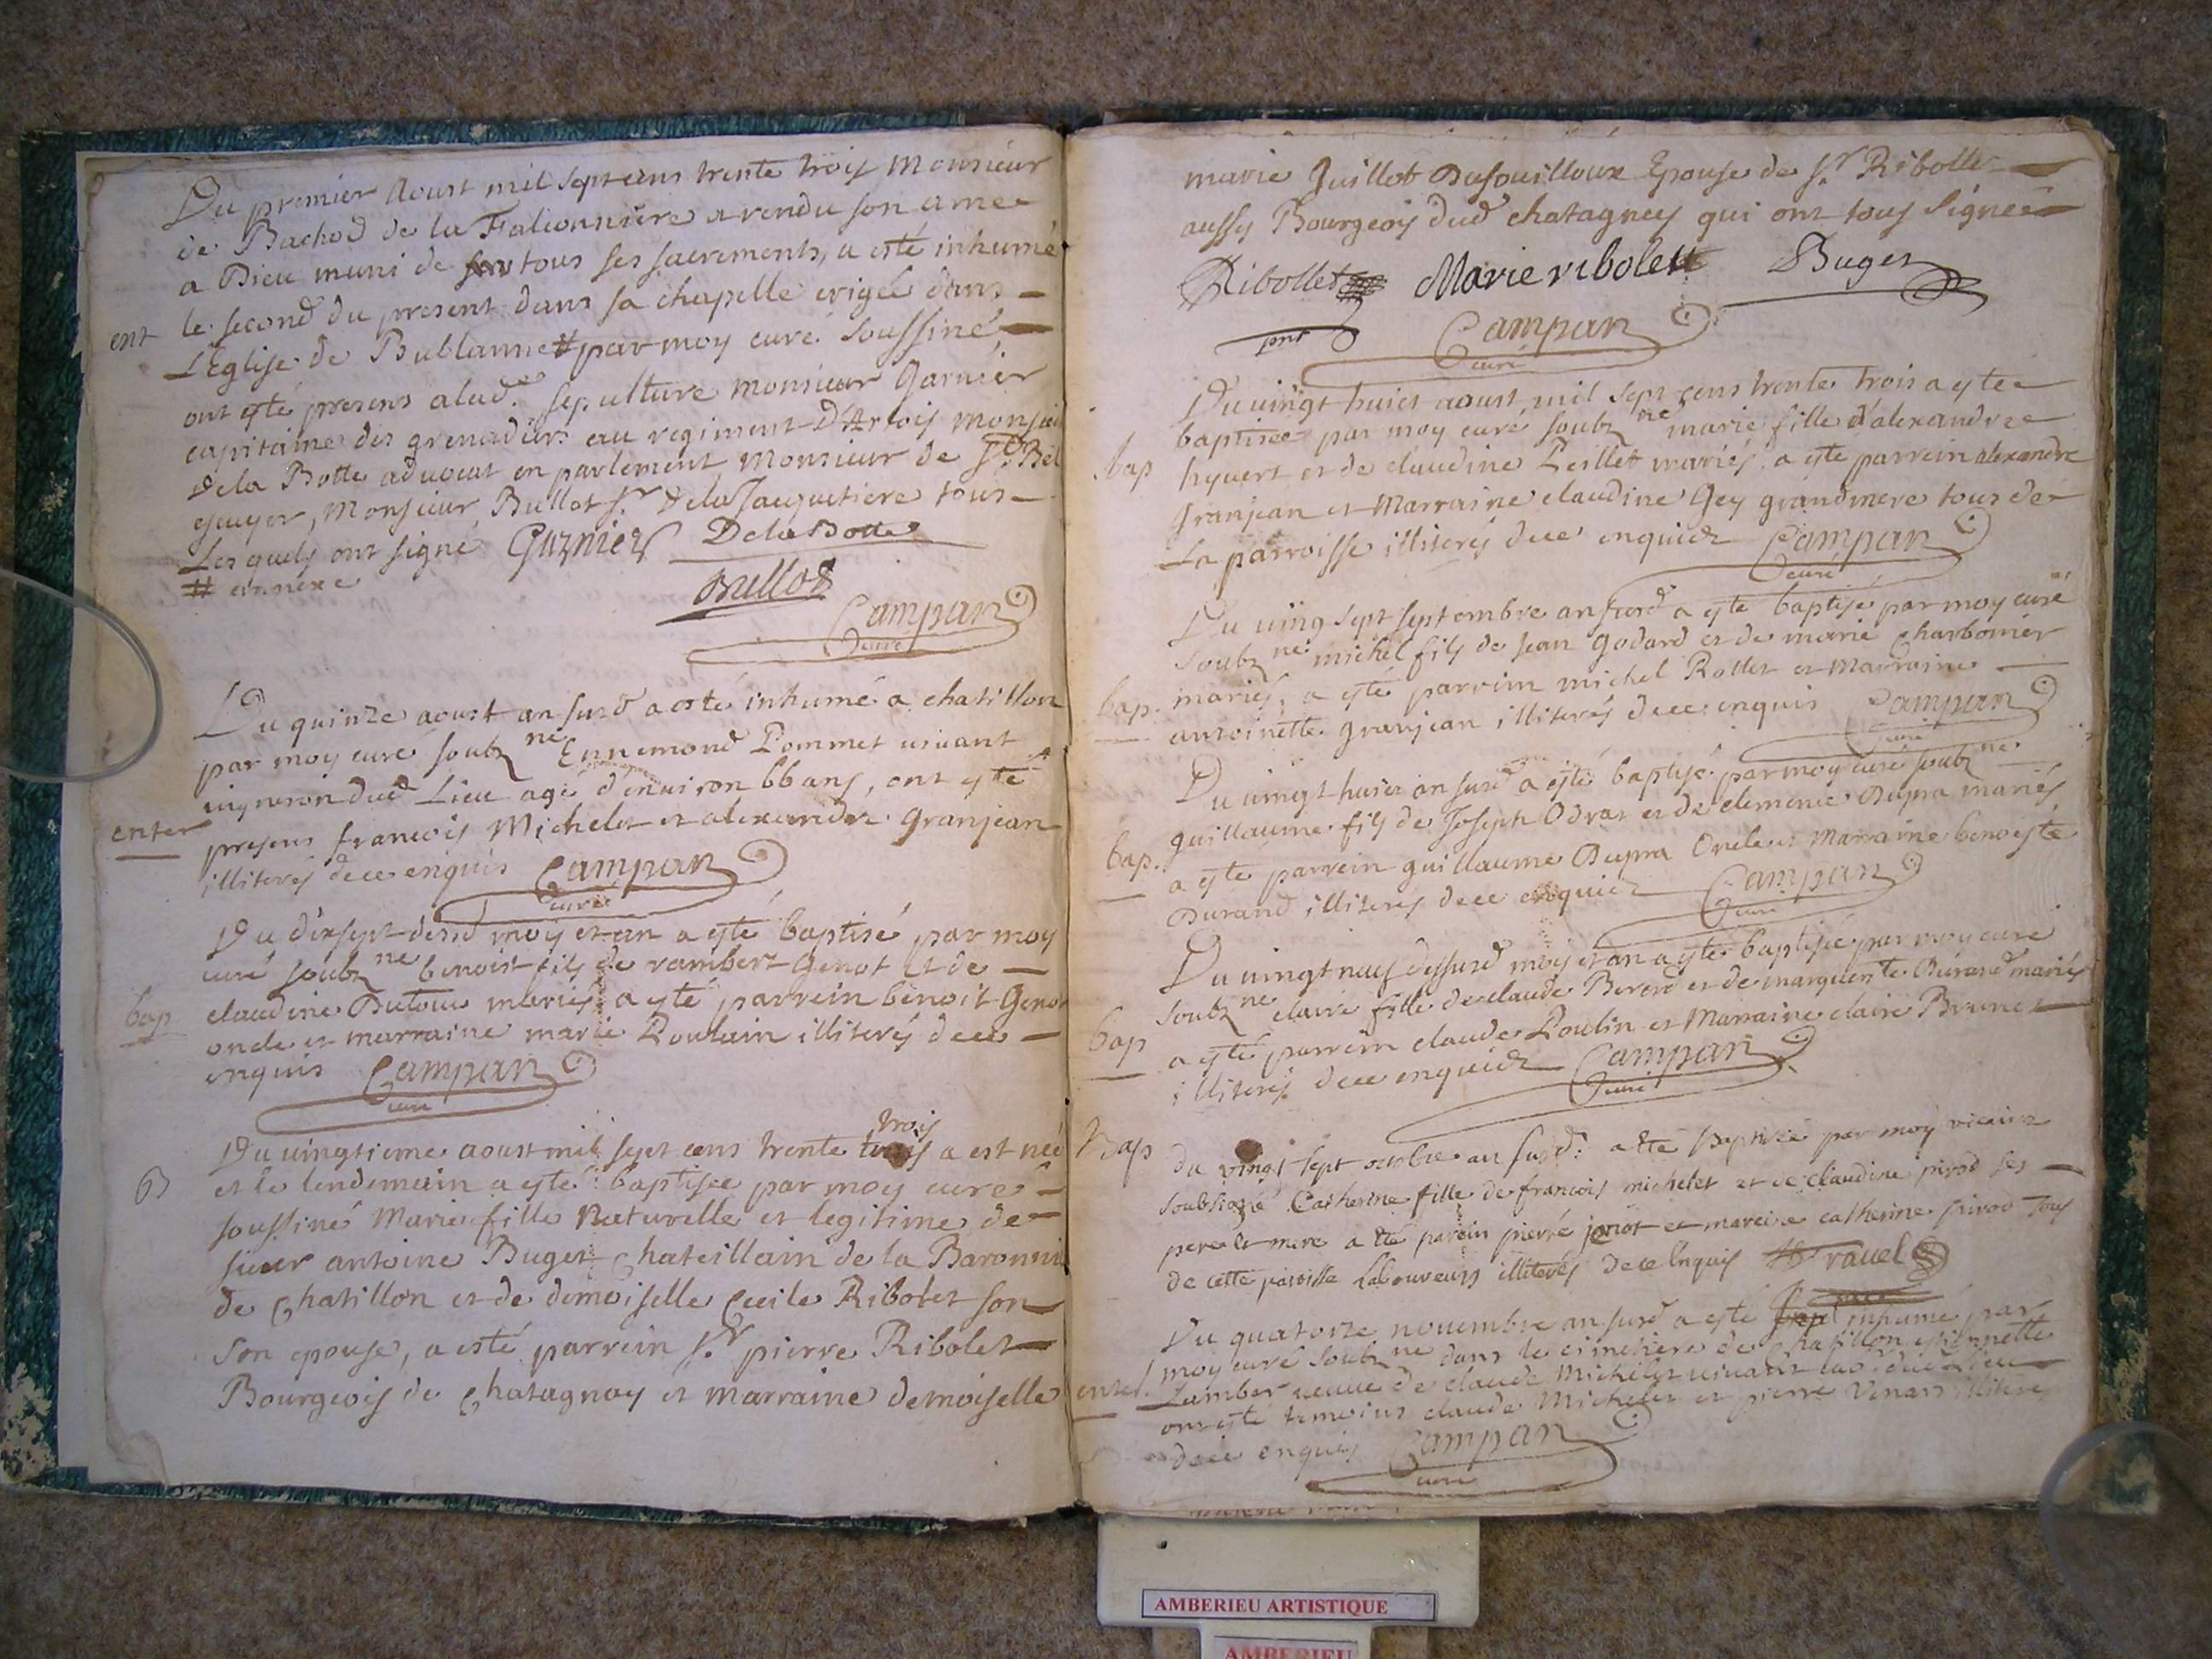 Du premier Aoust mil sept cens trente trois Monsieur
de Bachod de la Falconniere a rendu son ame
a Dieu muni de tous ses sacrements, a esté inhumé
ent le second du present dans sa chapelle erigée dans
L'Eglise de Bublanne # par moy curé soussiné,
ont esté presens a lad.e sepulture monsieur Garnier
capitaine des grenadiers au regiment D'Artois monsieu
Dela Botte advocat en parlement Monsieur de St. Bel
escuyer, Monsieur Bullot Sr. Dela Jacquetiere tous
Lesquels ont signé Garnier De la Botte
# annexe
Bullod
Campan
curé
Du quinze aoust an susd a esté inhumé a chatillon
par moy curé soubz né Ennemond Pommet vivant
vigneron dud Lieu agé d'environ 66 ans, ont esté
enter presens francois Michelet et alexandre granjean
illiterés de ce enquis Campan
curé
Du dixsept desd moy et an a esté baptisé par moy
curé soubz né benoist fils de rambert Genot et de
bap claudine Dutour mariés a esté parrein benoit Genot
oncle et marraine marie Poulain illiterés de ce
enquis Campan
curé
trois
Du vingtieme aoust mil sept cens trente trois a est née
B et le lendemain a esté baptisée par moy curé
soussiné Marie fille naturelle et legitime de
sieur antoine Buget Chateillain de la Baronnie
de Chatillon et de demoiselle Cecile Ribolet son
son epouse, a esté parrein Sr. pierre Ribolet
Bourgeois de Chatagnay et marraine demoiselle
marie Guillot Dufouilloux Epouse de Sr. Ribollet
aussy Bourgeois dud chatagney qui ont tous signée
Ribollet Marie ribolett Buget
pnt Campan
curé
Du vingt huict aoust mil sept cens trente trois a esté
baptisée par moy curé soubz né marie fille d'alexandre
bap hyvert et de claudine Peillet mariés a esté parrein alexandre
granjean et Marraine claudine Gey grandmere tous de
La parroisse illiterés de ce enquidz Campan
curé
Du ving sept septembre an susd a esté baptisé par moy curé
soubz né michel fils de jean godard et de marie Charbonier
bap. mariés, a esté parrein michel Rollet et Marraine
antoinette granjean illiterés de ce enquis Campan
curé
Du vingt huict an susd a esté baptisé par moy curé soubz né
guillaume fils de Joseph Odras et de clemence Dupra mariés
bap. a esté parrein guillaume Dupra Oncle et Marraine benoiste
Durand illiterés de ce enquidz Campan
curé
Du vingt neuf dessusd mois et an a esté baptisée par moy curé
soubz né claire fille de claude Bererd et de marguerite Durand mariés
bap a esté parrein claude Poulin et Marraine claire Brunet
illiterés de ce enquidz Campan
curé
Bap du vingt sept octobre an susd: a été Baptisée par moy vicaire
soubsigné Catherine fille de francois michelet et de claudine pirod ses
pere et mere a été parein pierre jenot et mareine catherine pirod tous
de cette paroisse Laboureurs illiterés de ce Enquis ravel
Du quatorze novembre an susd a esté inhumé par
moy curé soubz né dans le cimetiere de Chatillon estiennette
enter. Lumber veuve de claude Michelet vivant
ont esté temoins claude Michelet et pierre Venars illiteré
de ce enquis Campan
curé
AMBERIEU ARTISTIQUE
AMBERIEU